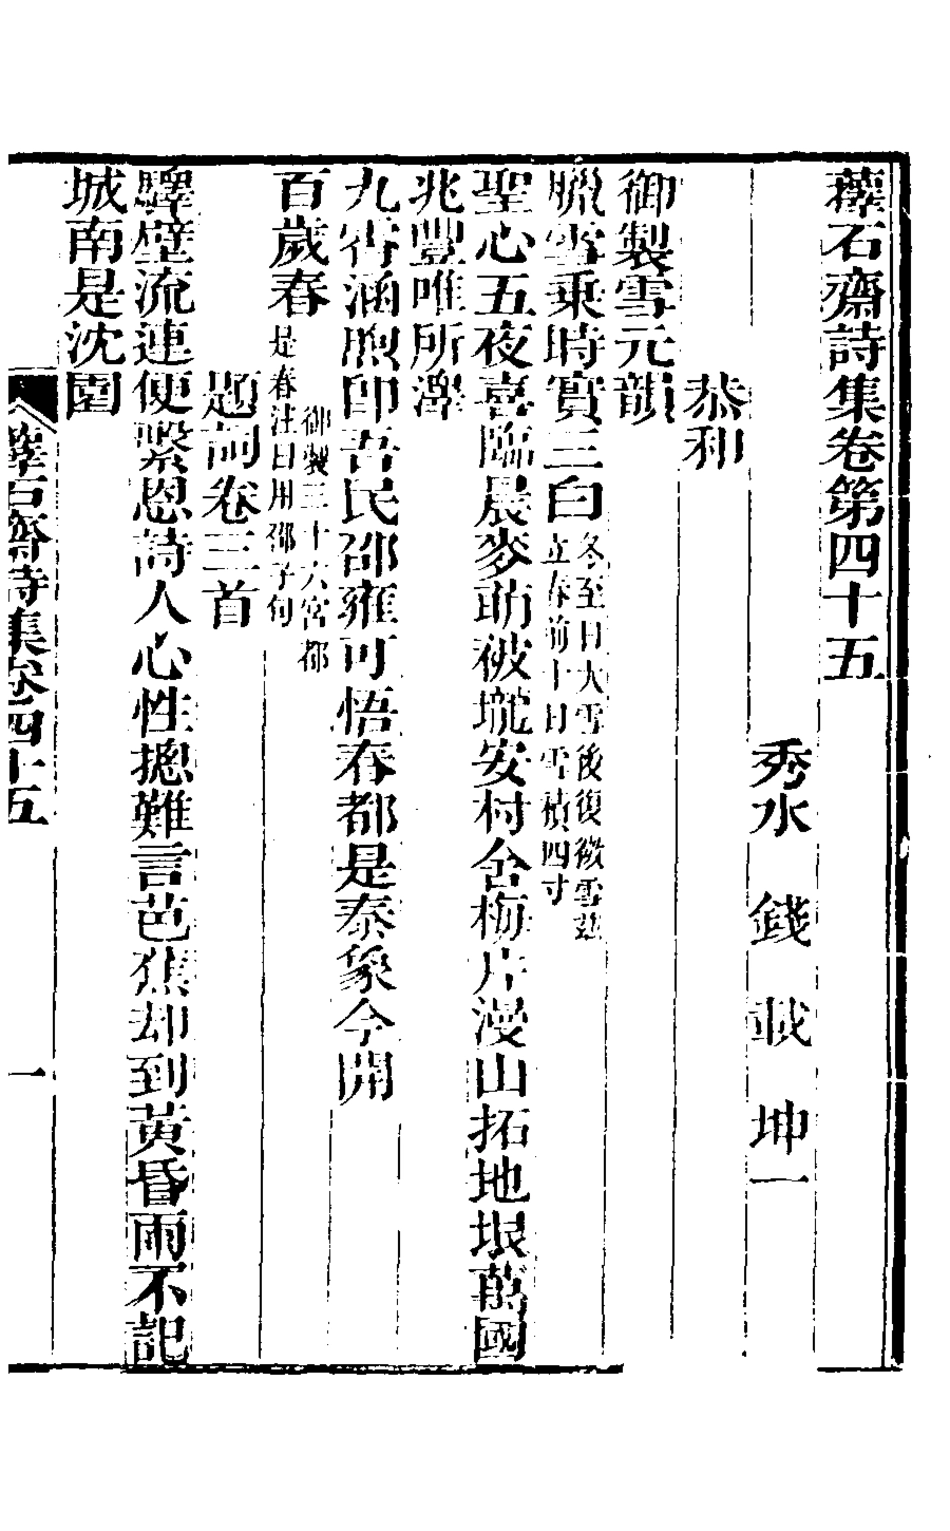 蘀石齋詩集卷第四十五
秀水 錢載 坤一
恭和
御製雪元韻
臘雪乘時實三白冬至日大雪後復微雪茲
立春前十日雪積四寸
聖心五夜喜臨晨麥萌被壠安村舍梅片漫山拓地垠萬國
兆豐唯所澤
九霄涵煦卽吾民邵雍可悟春都是泰象今開
百歲春御製三十六宮都
是春注曰用邵子句
題詞卷三首
驛壁流連便繫恩詩人心性摠難言芭蕉却到黃昏雨不記
城南是沈園
蘀石齋詩集卷四十五
一